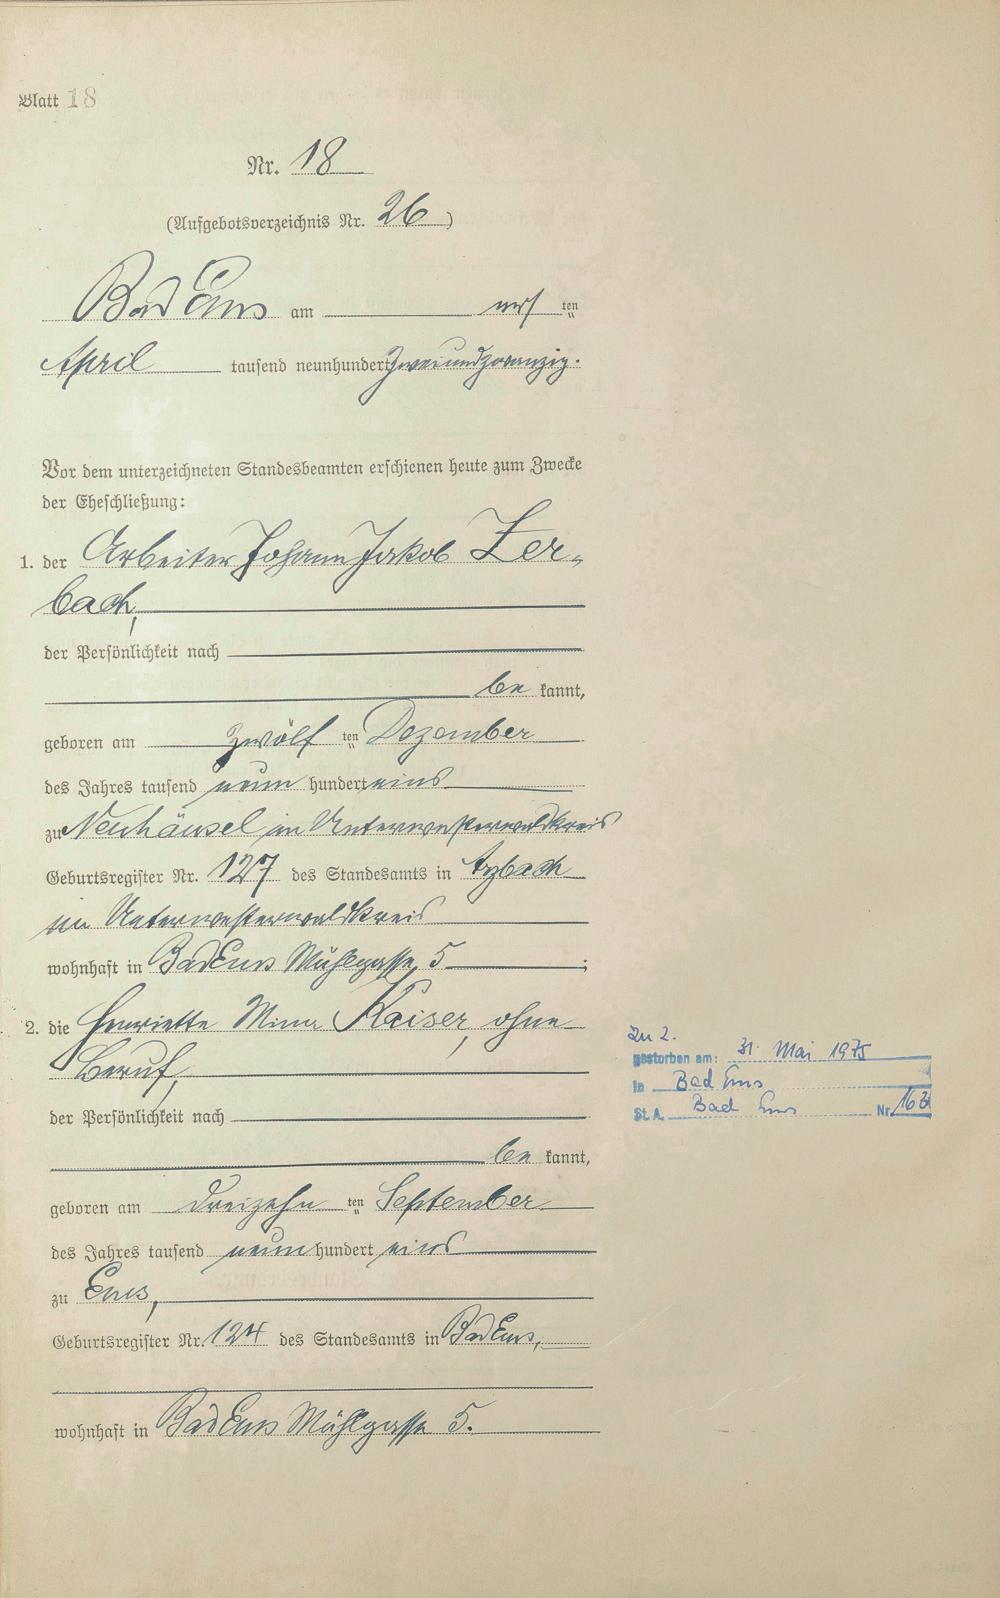 Blatt 18
Nr. 18
(Aufgebotsverzeichnis Nr. 26)
Bad Ems am erst ten
April tausend neunhundert zweiundzwanzig.
Vor dem unterzeichneten Standesbeamten erschienen heute zum Zwecke
der Eheschließung:
1. der Arbeiter Johann Jakob Zer-
bach,
der Persönlichkeit nach
be kannt,
geboren am zwölf ten Dezember
des Jahres tausend neun hundert eins
zu Neuhäusel im Unterwesterwaldkreis
Geburtsregister Nr. 127 des Standesamts in Arzbach
im Unterwesterwaldkreis
wohnhaft in Bad Ems Mühlgasse 5;
2. die Henriette Mina Kaiser, ohne
Beruf,
zu 2.
gestorben am: 31. Mai 1975
in Bad Ems
St.A. Bad Ems Nr.
der Persönlichkeit nach
be kannt,
geboren am dreizehn ten September
des Jahres tausend neun hundert eins
zu Ems,
Geburtsregister Nr. 124 des Standesamts in Bad Ems,
wohnhaft in Bad Ems Mühlgasse 5.